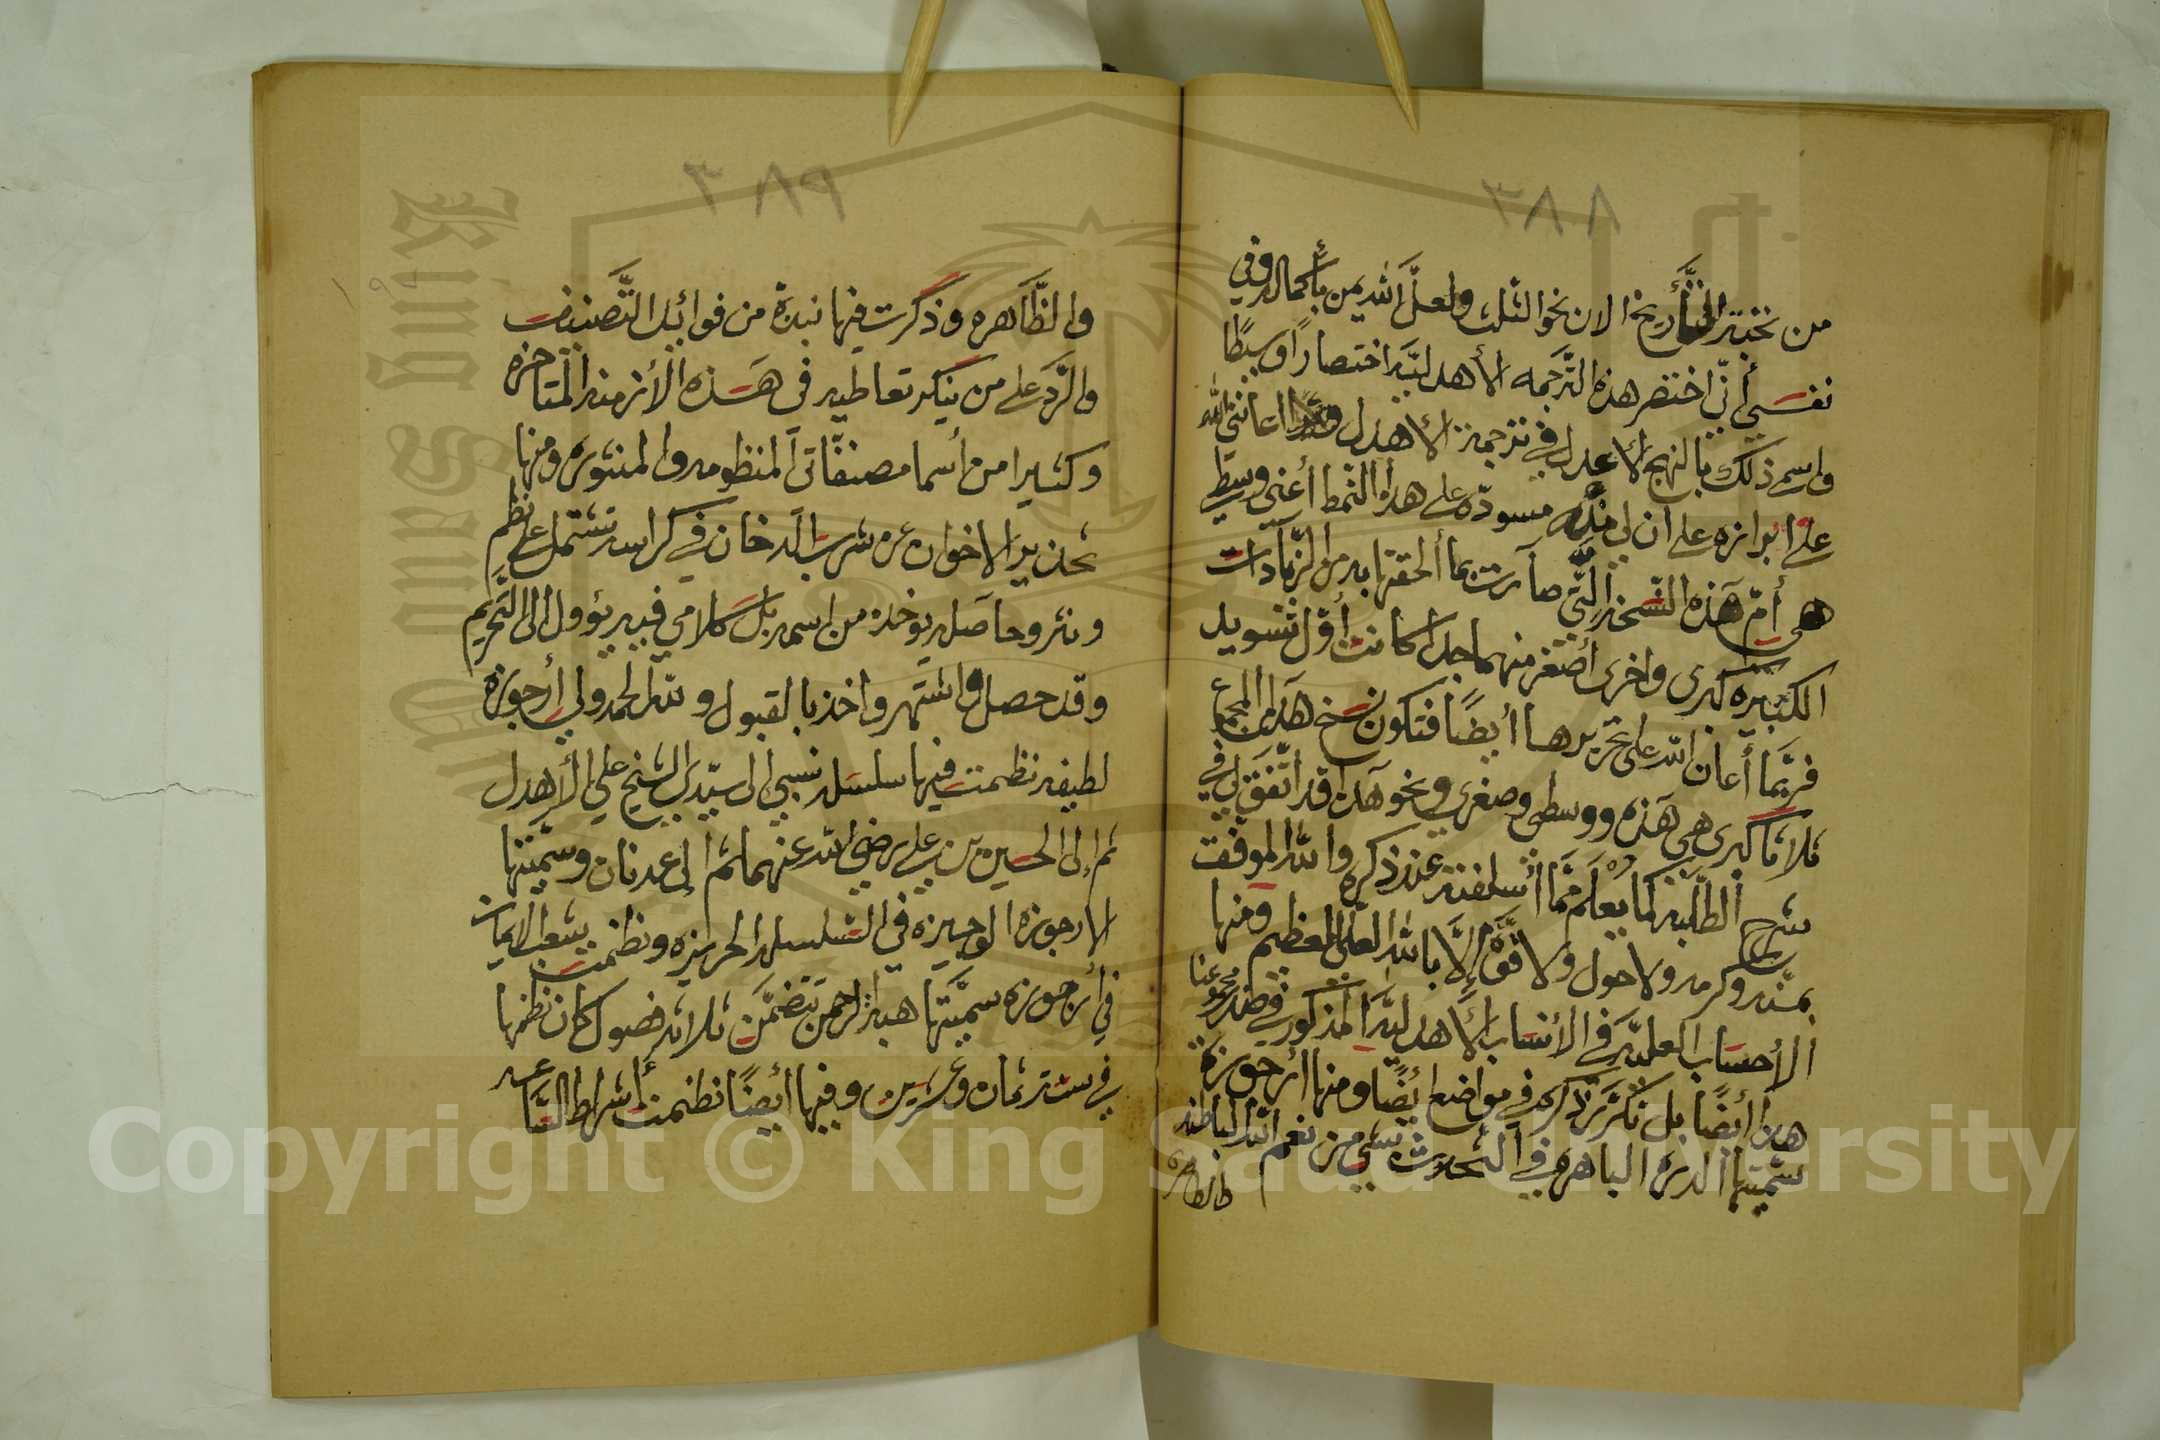 ٣٨٨
من نخبة التأريخ الان نحو الثلث ولعل الله يمن بأكماله وفي
نفسي أني اختصر هذه الترجمه الأهدلية اختصارا وسيطا
واسم ذلك بالنهج الأعدل في ترجمة الأهدل اعانني الله
على ابرازه على ان لي مسودّه على هذا النمط أعني وسيطي
هي أمّ هذه النسخة الّتي صارت بما ألحقتها به من الزيادات
الكبيره كبرى واخرى أصغر منهما جدا كانت أوّل تسويد
فربّما أعان الله على تحريرها أيضًا فتكون نسخ هذا المجموع
ثلاثا كبرى هي هذه ووسطى وصغرى ونحو هذا قد اتّفق لي في
شرح الطلبة كما يعلم ممّا أسلفته عند ذكره والله الموفّق
بمنّه وكرمه ولا حول ولا قوّة إلّا بالله العلي العظيم ومنها
الأحساب العليّة في الأنساب الأهدليّة المذكور في مجموعنا
هذا أيضًا بل تكرّر ذكره في مواضع أيضًا ومنها أرجوزة
سمّيتها الدره الباهره في التحدث بشيء من نعم الله الباطنه
والظاهره
٣٨٩
١٩٠
والظّاهره وذكرت فيها نبذة من فوائد التّصنيف
والرّد على من ينكر تعاطيه في هذه الأزمنة المتأخره
وكثيرا من أسما مصنفاتي المنظومه والمنثوره ومنها
تحذير الاخوان عن شرب الدخان في كراسه تشتمل على نظم
ونثر وحاصله يوخذ من اسمه بل كلامي فيه يؤول الى التحريم
وقد حصل واشتهر واخذ بالقبول ولله الحمد ولي أرجوزة
لطيفه نظمت فيها سلسلة نسبي الى سيّدي الشيخ علي الأهدل
ثم إلى الحسين بن علي رضي الله عنهما ثم إلى عدنان وسمّيتها
الارجوزه الوجيزه في السّلسله الحريزه ونظمت شعب الايمان
في أرجوزه سمّيتها هبة الرحمن تتضمّن ثلاثة فصول كان نظمها
في سنة ثمان وعشرين وفيها أيضًا نظمت أشراط السّاعه
Copyright © King Saud University
King Saud